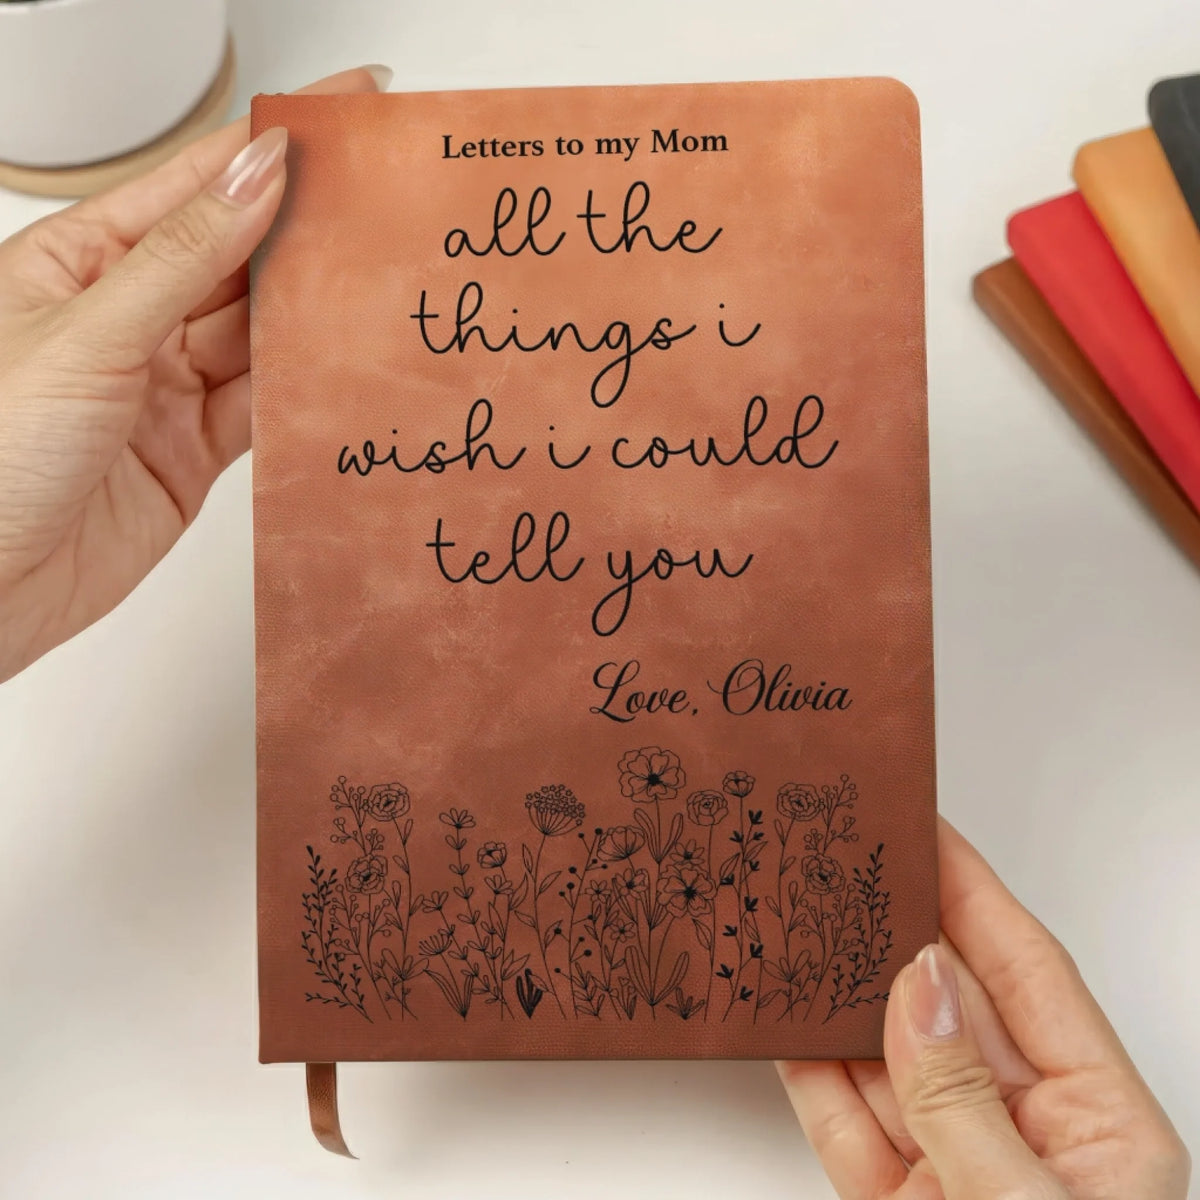 Letters to my Mom
all the
things i
wish i could
tell you
Love, Olivia